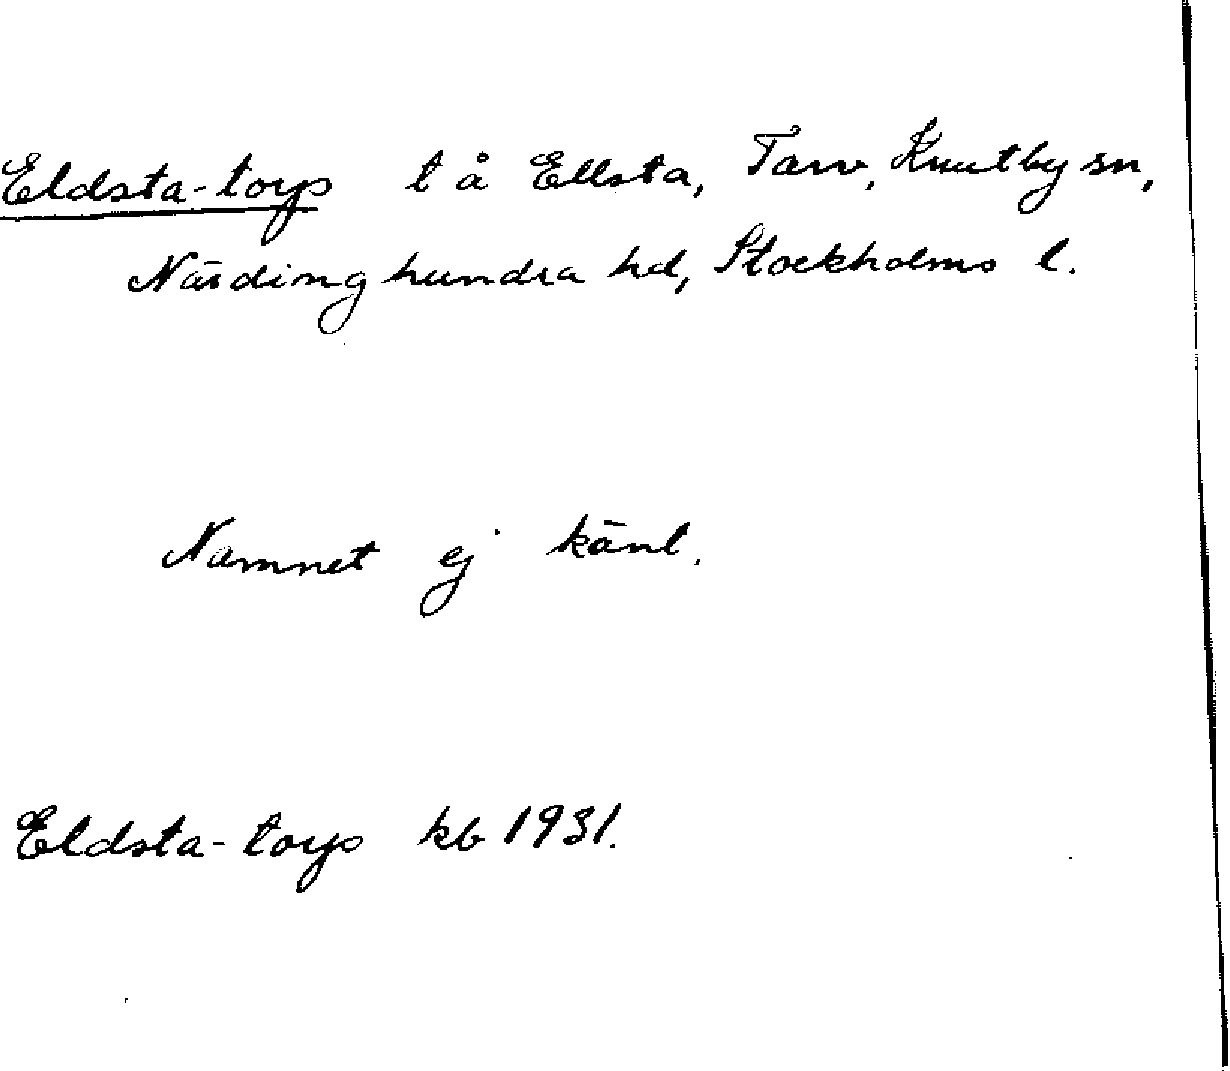 Eldsta-torp t å Ellsta, Tarv, Knutby sn,
Närdinghundra hd, Stockholms l.
Namnet ej känt.
Eldsta-torp kb 1931.